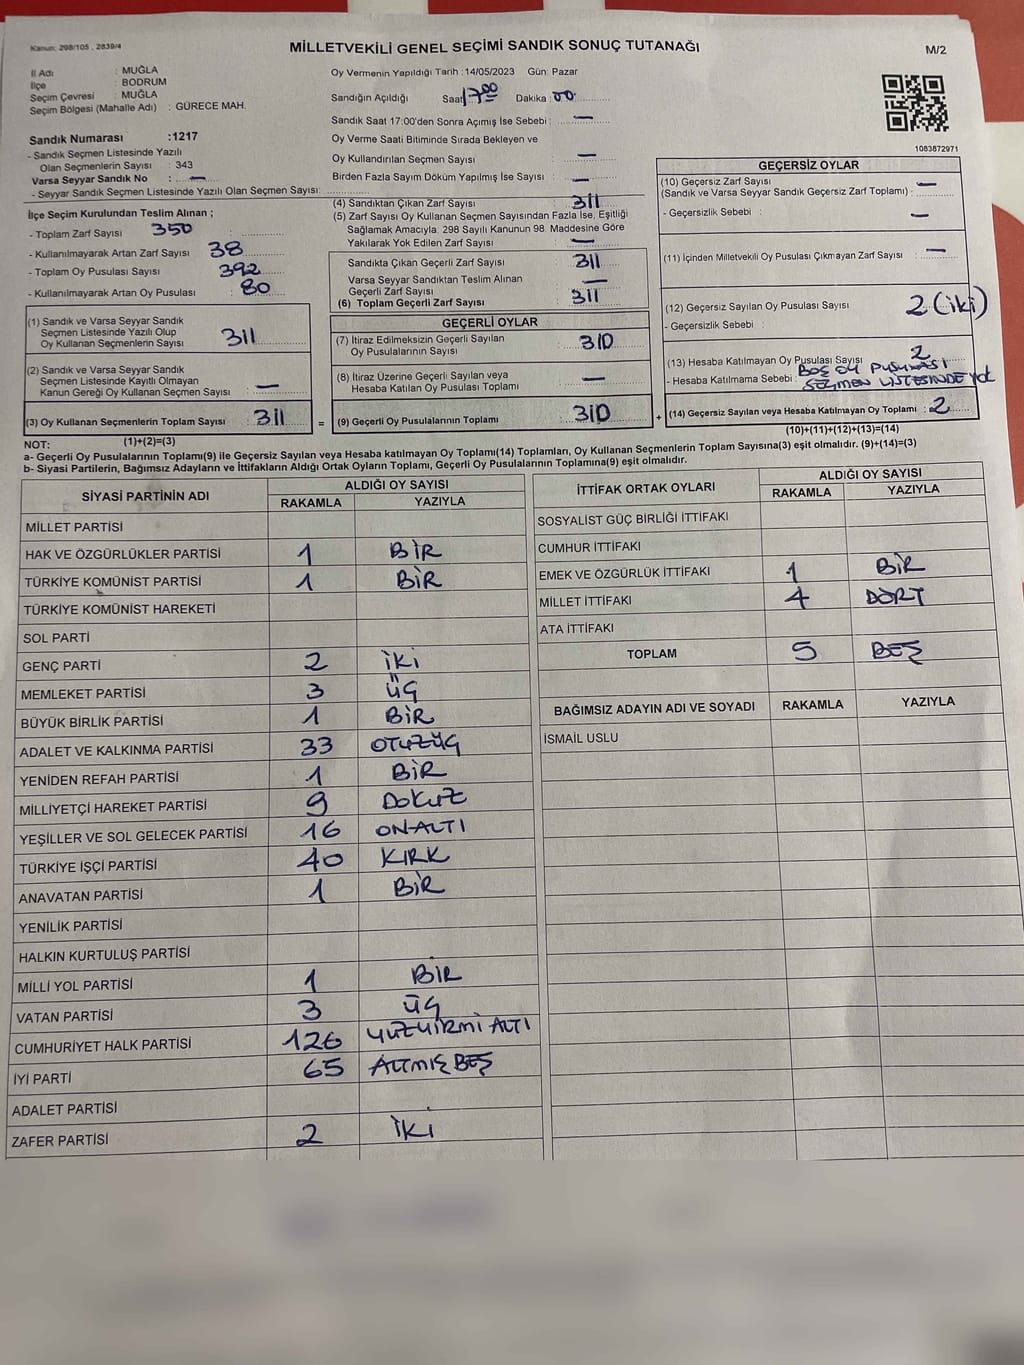 Kanun: 298/105 , 2839/4
MİLLETVEKİLİ GENEL SEÇİMİ SANDIK SONUÇ TUTANAĞI
M/2
İl Adı : MUĞLA
İlçe : BODRUM
Seçim Çevresi : MUĞLA
Seçim Bölgesi (Mahalle Adı) : GÜRECE MAH.
Sandık Numarası :1217
- Sandık Seçmen Listesinde Yazılı
Olan Seçmenlerin Sayısı : 343
Varsa Seyyar Sandık No : —
- Seyyar Sandık Seçmen Listesinde Yazılı Olan Seçmen Sayısı:
İlçe Seçim Kurulundan Teslim Alınan ;
- Toplam Zarf Sayısı 350 :
- Kullanılmayarak Artan Zarf Sayısı 38
- Toplam Oy Pusulası Sayısı : 392
- Kullanılmayarak Artan Oy Pusulası : 80
(1) Sandık ve Varsa Seyyar Sandık
Seçmen Listesinde Yazılı Olup
Oy Kullanan Seçmenlerin Sayısı 311
(2) Sandık ve Varsa Seyyar Sandık
Seçmen Listesinde Kayıtlı Olmayan
Kanun Gereği Oy Kullanan Seçmen Sayısı —
(3) Oy Kullanan Seçmenlerin Toplam Sayısı : 311
(1)+(2)=(3)
Oy Vermenin Yapıldığı Tarih : 14/05/2023 Gün: Pazar
Sandığın Açıldığı Saat 17:00 Dakika : 00
Sandık Saat 17:00'den Sonra Açımış İse Sebebi : —
Oy Verme Saati Bitiminde Sırada Bekleyen ve
Oy Kullandırılan Seçmen Sayısı : —
Birden Fazla Sayım Döküm Yapılmış İse Sayısı : —
(4) Sandıktan Çıkan Zarf Sayısı : 311
(5) Zarf Sayısı Oy Kullanan Seçmen Sayısından Fazla İse, Eşitliği
Sağlamak Amacıyla, 298 Sayılı Kanunun 98. Maddesine Göre
Yakılarak Yok Edilen Zarf Sayısı : —
Sandıkta Çıkan Geçerli Zarf Sayısı : 311
Varsa Seyyar Sandıktan Teslim Alınan
Geçerli Zarf Sayısı : —
(6) Toplam Geçerli Zarf Sayısı : 311
GEÇERLİ OYLAR
(7) İtiraz Edilmeksizin Geçerli Sayılan
Oy Pusulalarının Sayısı : 310
(8) İtiraz Üzerine Geçerli Sayılan veya
Hesaba Katılan Oy Pusulası Toplamı : —
= (9) Geçerli Oy Pusulalarının Toplamı : 310 +
1083872971
GEÇERSİZ OYLAR
(10) Geçersiz Zarf Sayısı : —
(Sandık ve Varsa Seyyar Sandık Geçersiz Zarf Toplamı) :
- Geçersizlik Sebebi : —
(11) İçinden Milletvekili Oy Pusulası Çıkmayan Zarf Sayısı : —
(12) Geçersiz Sayılan Oy Pusulası Sayısı 2 (iki)
- Geçersizlik Sebebi :
(13) Hesaba Katılmayan Oy Pusulası Sayısı 2
- Hesaba Katılmama Sebebi : BOŞ OY PUSULASI
SEÇMEN LİSTESİNDE YOK
(14) Geçersiz Sayılan veya Hesaba Katılmayan Oy Toplamı : 2
(10)+(11)+(12)+(13)=(14)
NOT:
a- Geçerli Oy Pusulalarının Toplamı(9) ile Geçersiz Sayılan veya Hesaba katılmayan Oy Toplamı(14) Toplamları, Oy Kullanan Seçmenlerin Toplam Sayısına(3) eşit olmalıdır. (9)+(14)=(3)
b- Siyasi Partilerin, Bağımsız Adayların ve İttifakların Aldığı Ortak Oyların Toplamı, Geçerli Oy Pusulalarının Toplamına(9) eşit olmalıdır.
SİYASİ PARTİNİN ADI ALDIĞI OY SAYISI
RAKAMLA YAZIYLA
MİLLET PARTİSİ
HAK VE ÖZGÜRLÜKLER PARTİSİ 1 BİR
TÜRKİYE KOMÜNİST PARTİSİ 1 BİR
TÜRKİYE KOMÜNİST HAREKETİ
SOL PARTİ
GENÇ PARTİ 2 İKİ
MEMLEKET PARTİSİ 3 ÜÇ
BÜYÜK BİRLİK PARTİSİ 1 BİR
ADALET VE KALKINMA PARTİSİ 33 OTUZÜÇ
YENİDEN REFAH PARTİSİ 1 BİR
MİLLİYETÇİ HAREKET PARTİSİ 9 DOKUZ
YEŞİLLER VE SOL GELECEK PARTİSİ 16 ON-ALTI
TÜRKİYE İŞÇİ PARTİSİ 40 KIRK
ANAVATAN PARTİSİ 1 BİR
YENİLİK PARTİSİ
HALKIN KURTULUŞ PARTİSİ
MİLLİ YOL PARTİSİ 1 BİR
VATAN PARTİSİ 3 ÜÇ
CUMHURİYET HALK PARTİSİ 126 YÜZYİRMİ ALTI
İYİ PARTİ 65 ALTMIŞ BEŞ
ADALET PARTİSİ
ZAFER PARTİSİ 2 İKİ
İTTİFAK ORTAK OYLARI ALDIĞI OY SAYISI
RAKAMLA YAZIYLA
SOSYALİST GÜÇ BİRLİĞİ İTTİFAKI
CUMHUR İTTİFAKI
EMEK VE ÖZGÜRLÜK İTTİFAKI 1 BİR
MİLLET İTTİFAKI 4 DÖRT
ATA İTTİFAKI
TOPLAM 5 BEŞ
BAĞIMSIZ ADAYIN ADI VE SOYADI RAKAMLA YAZIYLA
İSMAİL USLU